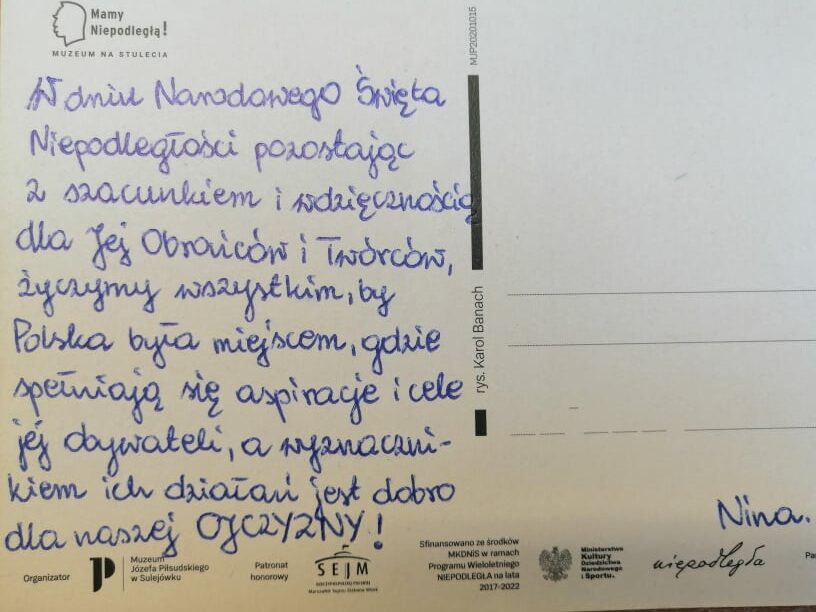 Mamy
Niepodległą!
MUZEUM NA STULECIA
W dniu Narodowego Święta
Niepodległości pozostając
z szacunkiem i wdzięcznością
dla Jej Obrońców i Twórców,
życzymy wszystkim, by
Polska była miejscem, gdzie
spełniają się aspiracje i cele
jej obywateli, a wyznaczni-
kiem ich działań jest dobro
dla naszej OJCZYZNY!
MJP20201015
rys. Karol Banach
Nina.
Organizator
Muzeum
Józefa Piłsudskiego
w Sulejówku
Patronat
honorowy
SEJM
RZECZYPOSPOLITEJ POLSKIEJ
Marszałek Sejmu Elżbieta Witek
Sfinansowano ze środków
MKDNiS w ramach
Programu Wieloletniego
NIEPODLEGŁA na lata
2017-2022
Ministerstwo
Kultury
Dziedzictwa
Narodowego
i Sportu.
niepodległa